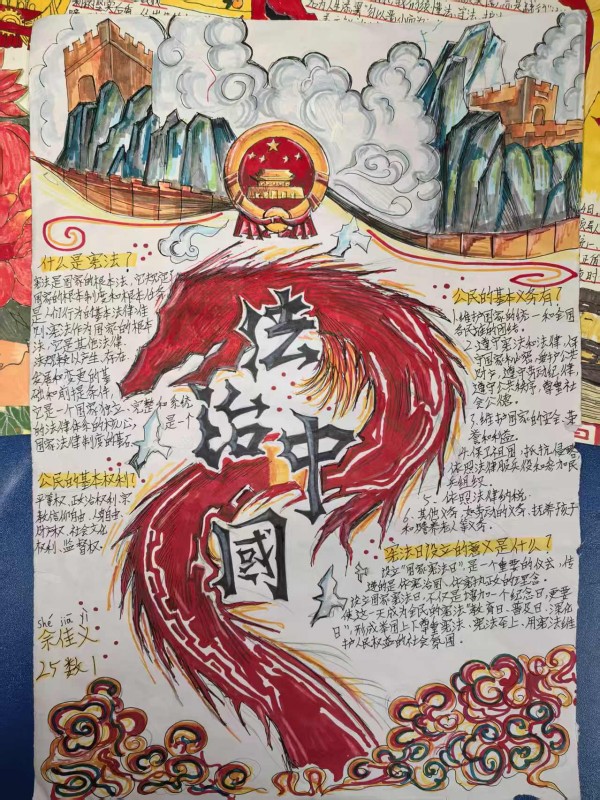 什么是宪法?
宪法是国家的根本法,它规定了
国家的根本制度和根本任务
是人们行为的基本法律准
则,宪法作为国家的根本
法,它是其他法律、
法规赖以产生、存在、
发展和变更的基
础和前提条件,
它是一个国家独立、完整和系统
的法律体系的核心,是一个
国家法律制度的基
公民的基本权利?
平等权、政治权利、宗
教信仰自由、人身自由、
社会文化
权利、监督权.
shé jiā yì
佘佳义
25数1
法治中國
公民的基本义务有?
1.维护国家的统一和全国
各民族的团结.
2.遵守宪法和法律,保
守国家秘密,爱护公共
财产,遵守劳动纪律,
遵守公共秩序,尊重社
会公德
3.维护国家的安全、荣
誉和利益.
4.保卫祖国,抵抗侵略
依照法律服兵役和参加民
兵组织
5.依照法律纳税.
6.其他义务,如劳动的义务,抚养孩子
和赡养老人等义务.
宪法日设立的意义是什么?
设立“国家宪法日”,是一个重要的仪式,传
递的是依宪治国、依宪执政的理念.
设立国家宪法日,不仅是增加一个纪念日,更要
使这一天成为全民的宪法“教育日、普及日、深化
日”,形成举国上下尊重宪法、宪法至上、用宪法维
护人民权益的社会氛围.